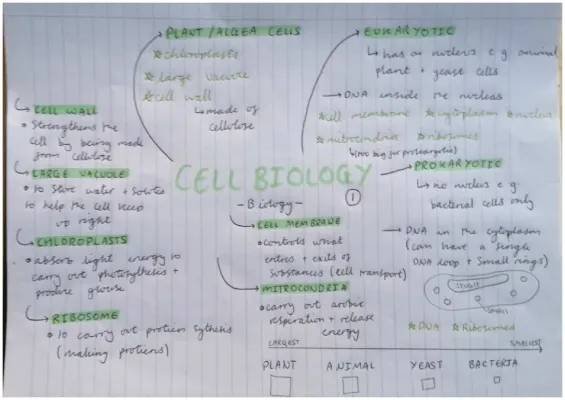 PLANT / ALGEA CELLS
☆chloroplasts
☆large vacuole
☆cell wall
↳made of
cellulose
EUKARYOTIC
↳ has a nucleus e.g animal
plant + yeast cells
→ DNA inside the nucleus
☆cell membrane ☆cytoplasm ☆nucleus
☆mitocondria ☆ribosomes
↳(too big for prokaryotic)
PROKARYOTIC
↳ no nucleus e.g.
bacterial cells only
→ DNA in the cytoplasm
(can have a single
DNA loop + small rings)
☆DNA ☆Ribosomes
CELL WALL
• Strengthens the
cell by being made
from cellulose
LARGE VACUOLE
• to store water + solutes
to help the cell keep
up right
CHLOROPLASTS
• absorb light energy to
carry out photosythesis +
produce glucose
RIBOSOME
• to carry out protien sythesis
(making protiens)
CELL BIOLOGY
- Biology -
1
CELL MEMBRANE
• controls what
entres + exits of
substances (cell transport)
MITROCONDRIA
• carry out arobic
respiration + release
energy
LARGEST SMALLEST
PLANT ANIMAL YEAST BACTERIA